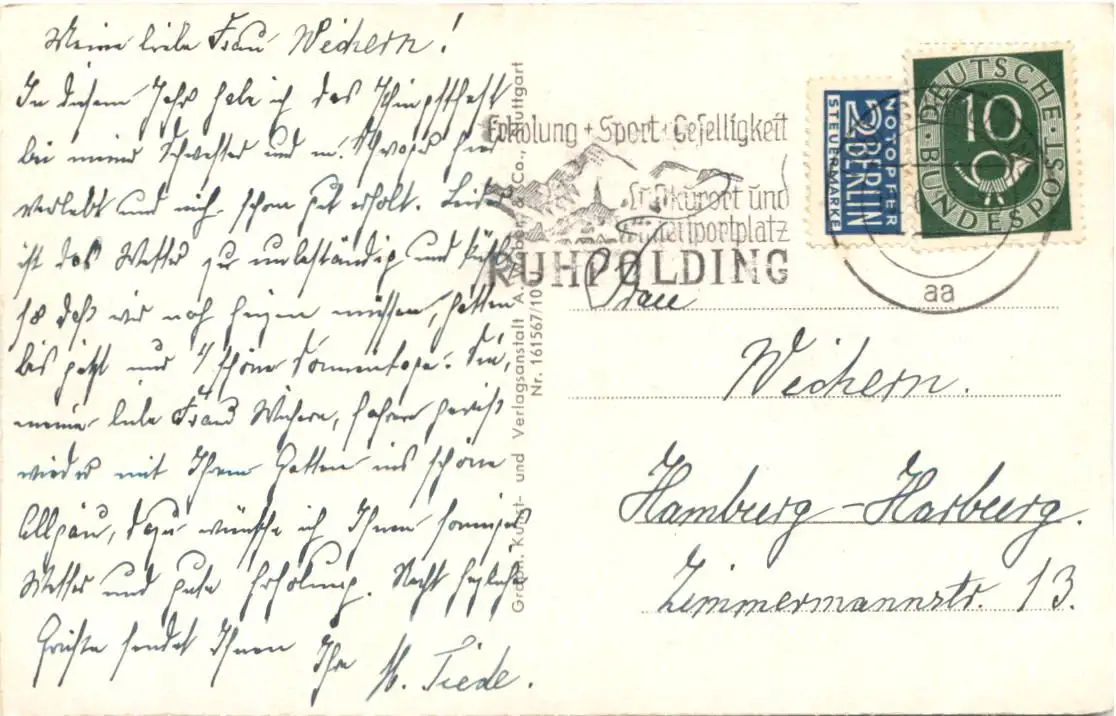 Meine liebe Frau Wichern!
In diesem Jahr habe ich das Pfingstfest
bei meiner Schwester und m. Schwager hier
verlebt und mich schon gut erholt. Leider
ist das Wetter zu unbeständig und kühl
so daß wir noch heizen müssen, hatten
bis jetzt nur 4 schöne Sonnentage. Sie,
meine liebe Frau Wichern, fahren gewiß
wieder mit Ihrem Gatten ins schöne
Allgäu, dazu wünsche ich Ihnen sonniges
Wetter und gute Erholung. Recht herzliche
Grüße sendet Ihnen Ihre M. Tiede.
Graph. Kunst- und Verlagsanstalt A. & Co., Stuttgart
Nr. 161567/10
Erholung + Sport + Geselligkeit
Luftkurort und
Wintersportplatz
RUHPOLDING
NOTOPFER
2 BERLIN
STEUERMARKE
DEUTSCHE
10
BUNDESPOST
aa
Frau
Wichern.
Hamburg-Harburg.
Zimmermannstr. 13.